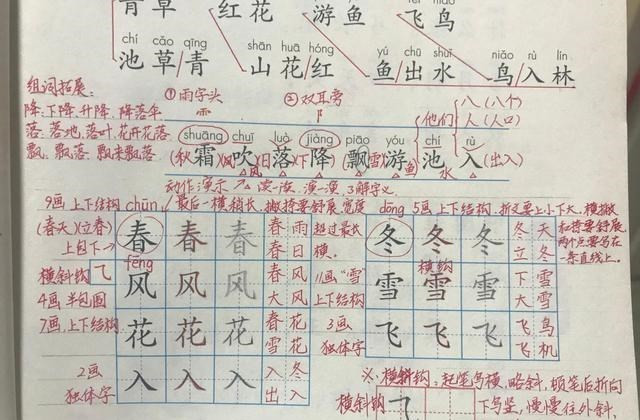 青草 红花 游鱼 飞鸟
chí cǎo qīng shān huā hóng yú chū shuǐ niǎo rù lín
池草/青 山花/红 鱼/出水 鸟/入林
组词拓展: ①雨字头 ②双耳旁
降:下降、升降、降落伞
落:落地、落叶、花开花落
飘:飘落、飘来飘落
他们 八(八个)
人(人口)
shuāng chuī luò jiàng piāo yóu chí rù
(秋)霜(风)吹(日)落(下)降(飘雪)游(鱼)池入(出入)
水
动作演示 读一读 演一演 3解字义
9画 上下结构 chūn 最后一横稍长,撇捺要舒展,宽度
超过最长
横。
(春天)(立春)
上包下
春 春 春 春雨
春日
dōng 5画 上下结构,折文要上小下大,横撇
和捺要舒展,
两个点要写在
一条直线上。
冬 冬 冬 冬天
立冬
横斜钩 飞
4画 半包围
fēng
风 风 风 春风
大风
横钩
11画“雪”
上下结构
雪 雪 雪 下雪
大雪
7画,上下结构
花 花 花 春花
雪花
3画
独体字
飞 飞 飞 飞鸟
飞机
2画
独体字
入 入 入 入冬
出入
※横斜钩:起笔写横,略斜,顿笔后折向
横斜钩 飞 下写竖,慢慢往外斜,